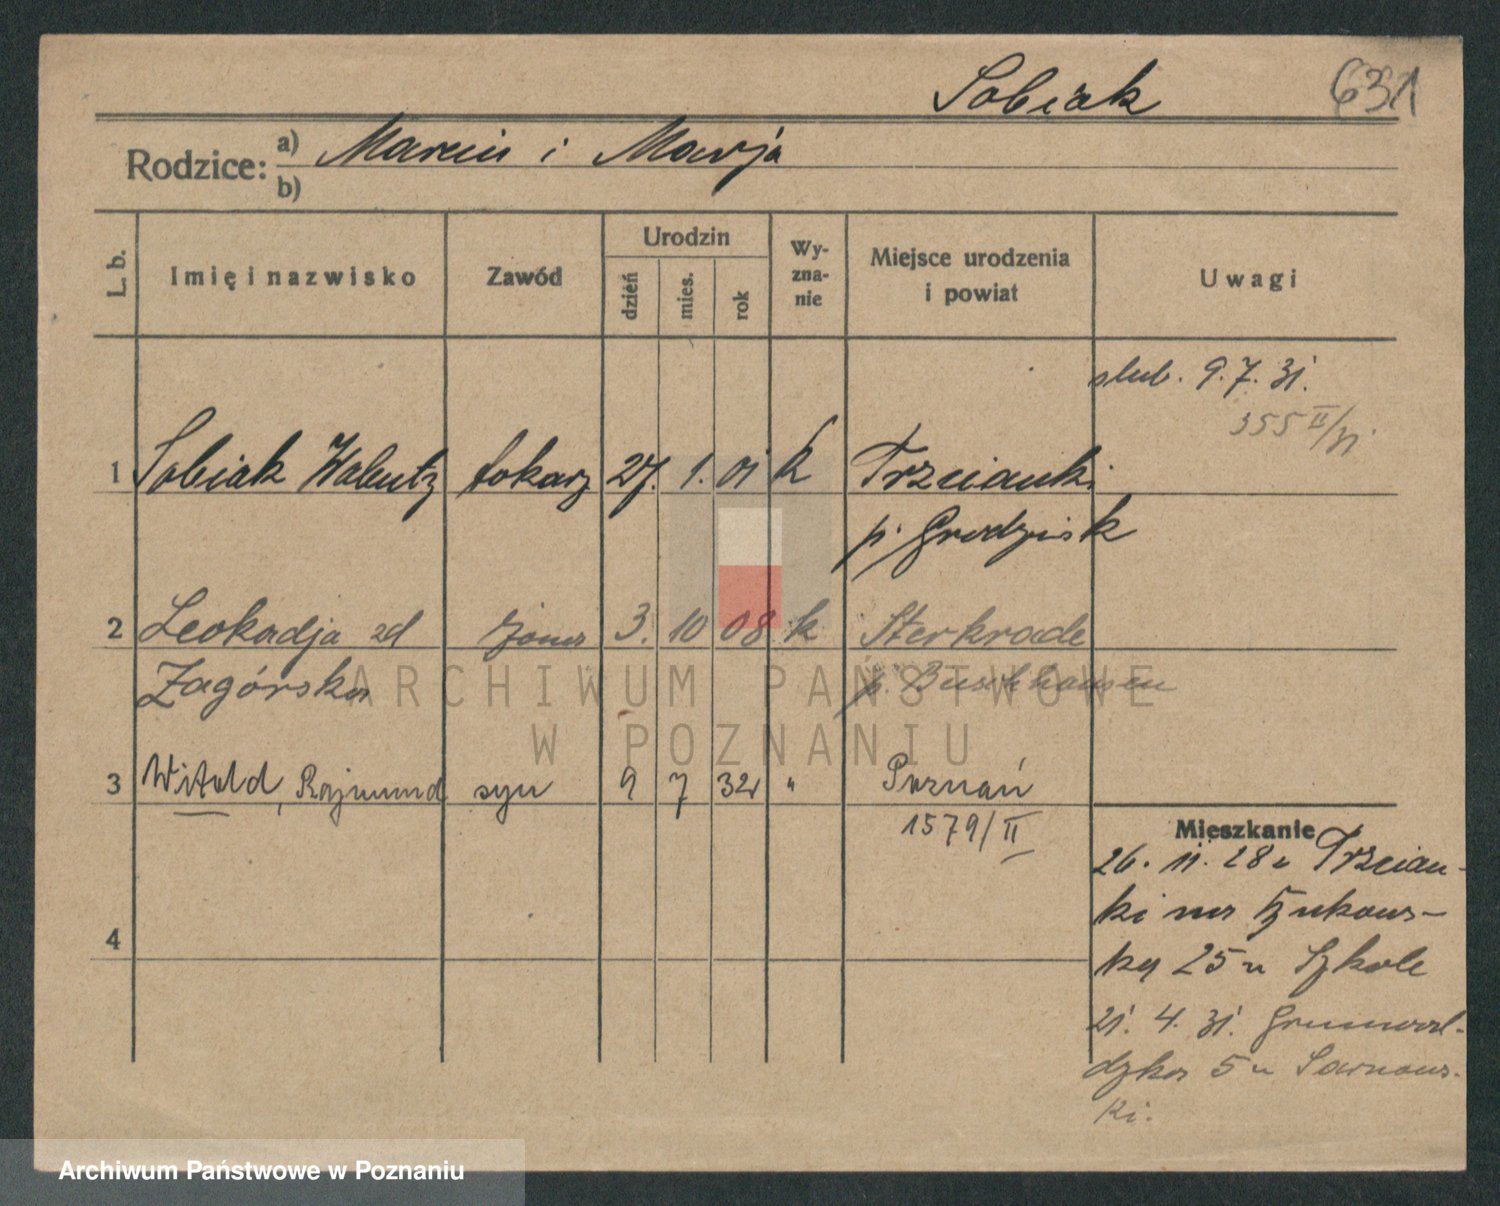 Sobiak 631
Rodzice: a) Marcin i Marja
b)
L. b. Imię i nazwisko Zawód Urodzin dzień mies. rok Wy-zna-nie Miejsce urodzenia i powiat Uwagi
ślub. 9. 7. 31.
355 II/31
1 Sobiak Walenty tokarz 27. 1. 01 k Trzcianki
p. Grodzisk
2 Leokadja zd żona 3. 10 08 k Sterkrade
Zagórska p. Buschhausen
3 Witold, Rajmund syn 9 7 32 " Poznań
1579/II
4
Mieszkanie
26. 11. 28 z Trzcian-
ki na Żukows-
ką 25 u Szkole
21. 4. 31. Grunwal-
dzka 5 u Sarnows-
ki.
ARCHIWUM PAŃSTWOWE
W POZNANIU
Archiwum Państwowe w Poznaniu